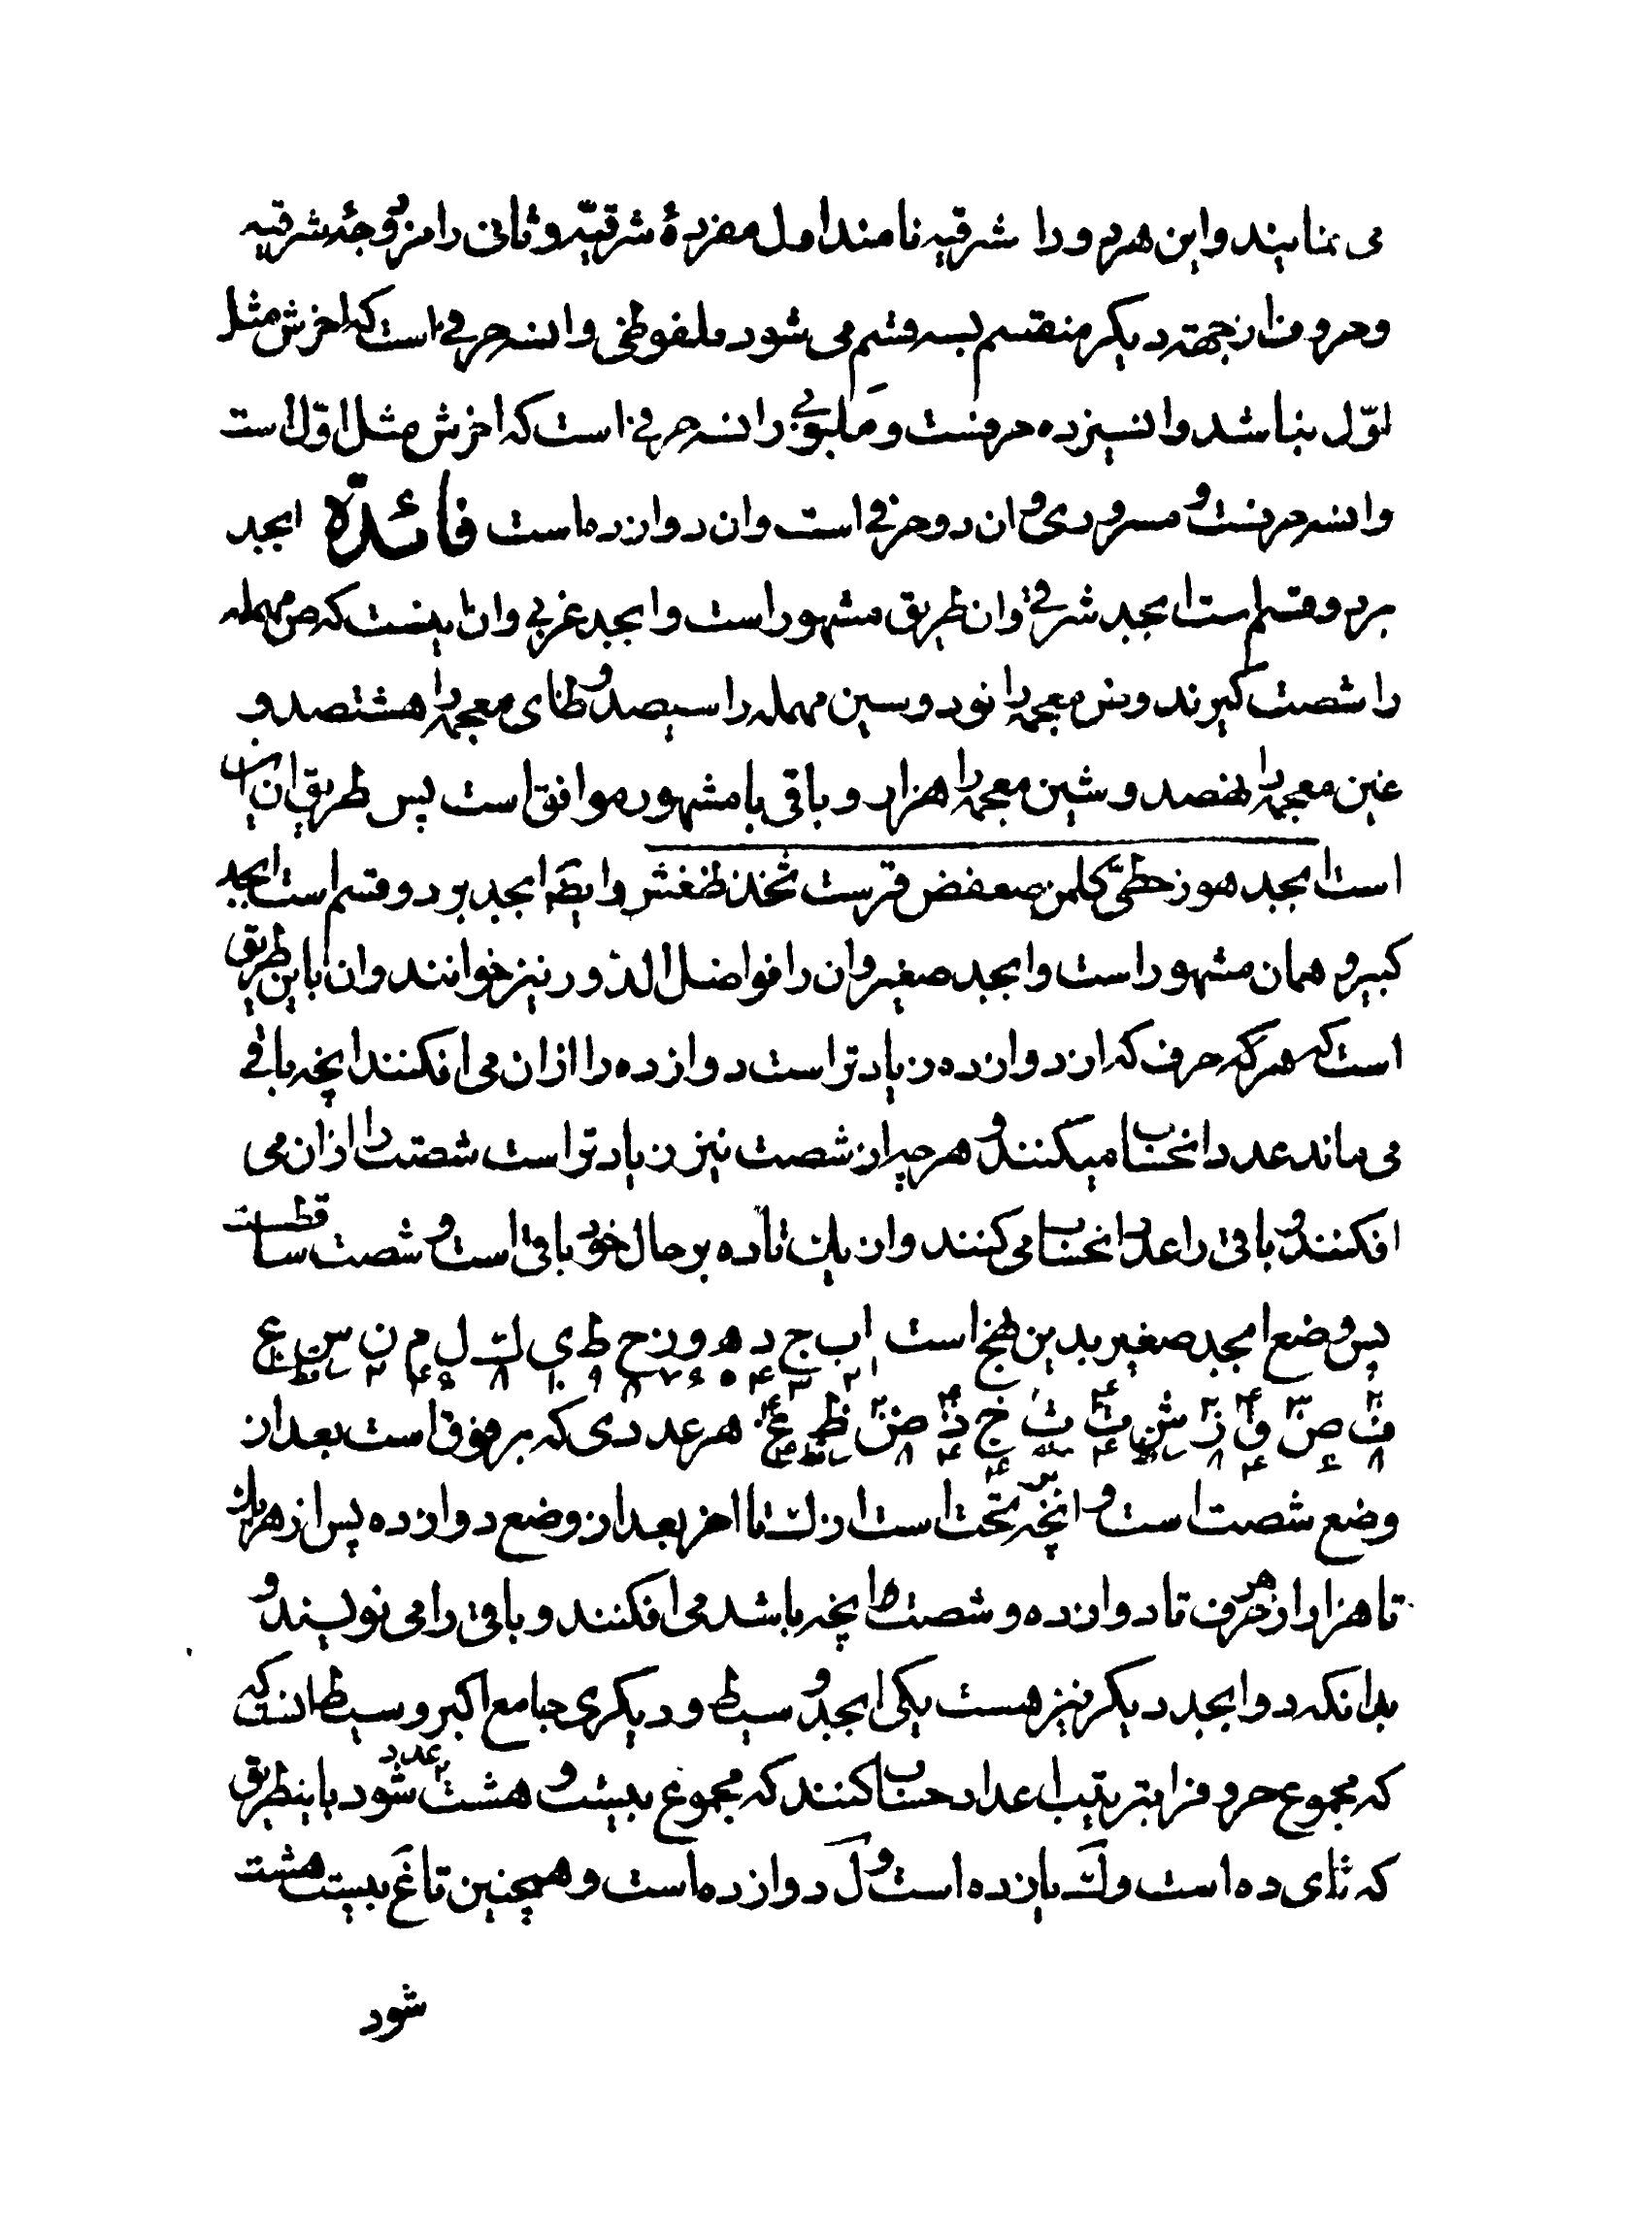 می نمایند و این هر دو را شرقیه نامند اول مفردهٔ شرقیّه و ثانی را مزدوجهٔ شرقیه
و حروف از جهة دیگر منقسم بسه قسم می شود ملفوظی و ان سه حرفی است که اخرش مثل
اوّل نباشد و ان سیزده حرفست و ملبوبی و ان سه حرفی است که اخرش مثل اوّل است
و ان سه حرفست و مسروری و ان دو حرفی است و ان دوازده است فائدة ابجد
بر دو قسم است ابجد شرقی و ان طریق مشهور است و ابجد غربی و ان اینست که ص مهمله
را شصت گیرند و ض معجمه را نود و سین مهمله را سیصد و ظای معجمه را هشتصد و
غین معجمه را نهصد و شین معجمه را هزار و باقی با مشهور موافق است پس طریق ان این
است ابجد هوز حطی کلمن صعفض قرست ثخذ ظغش و ایضا ابجد بر دو قسم است ابجد
کبیر و همان مشهور است و ابجد صغیر و ان را فواضل الدور نیز خوانند و ان باین طریق
است که هر که حرف که از دوازده زیادتر است دوازده را ازان می افکنند انچه باقی
می ماند عدد ان حساب میکنند و هر چه از شصت نیز زیادتر است شصت را ازان می
افکنند و باقی را عدد ان حساب می کنند و از یک تا ده بر حال خود باقی است و شصت ساقط است
پس وضع ابجد صغیر بدین نهج است ا ب ج د ه و ز ح ط ی ک ل م ن س ع
ف ص ق ر ش ت ث خ ذ ض ظ غ هر عددی که بر فوق است بعد از
وضع شصت است و انچه بر تحت است از ک تا اخر بعد از وضع دوازده پس از هر یک
تا هزار از هر حرف تا دوازده و شصت را انچه باشد می افکنند و باقی را می نویسند و
بدانکه دو ابجد دیگر نیز هست یکی ابجد وسیط و دیگری جامع اکبر وسیط انست که
که مجموع حروف را بترتیب اعداد حساب کنند که مجموع بیست و هشت عدد شود باینطریق
که تا ی ده است و ک یازده است و ل دوازده است و همچنین تا غ بیست هشت
شود